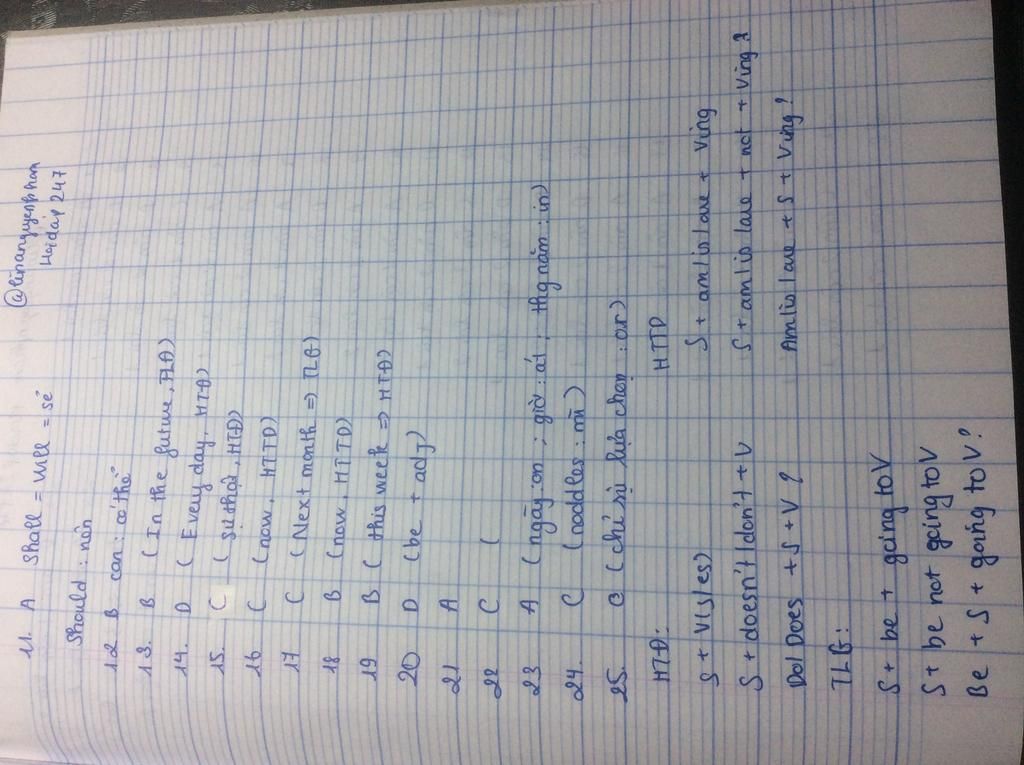 @linanguyenphan
Hoidap 247
11. A Shall = will = sẽ
Should : nên
12 B can : có thể
13. B (In the future, TLĐ)
14. D (Every day, HTĐ)
15. C (Sự thật, HTĐ)
16 C (now, HTTD)
17 C (Next month => TLG)
18 B (now, HTTD)
19 B (this week => HTĐ)
20 D (be + adj)
21 A
22 C (
23 A (ngày : on ; giờ : at ; thg năm : in)
24. C (noddles : mì)
25. (chỉ sự lựa chọn : or)
HTĐ: HTTD
S + V(s/es) S + am/is/are + Ving
S + doesn't/don't + V S + am/is/are + not + Ving
Do/Does + S + V ? Am/is/are + S + Ving?
TLG:
S + be + going to V
S + be not going to V
Be + S + going to V?